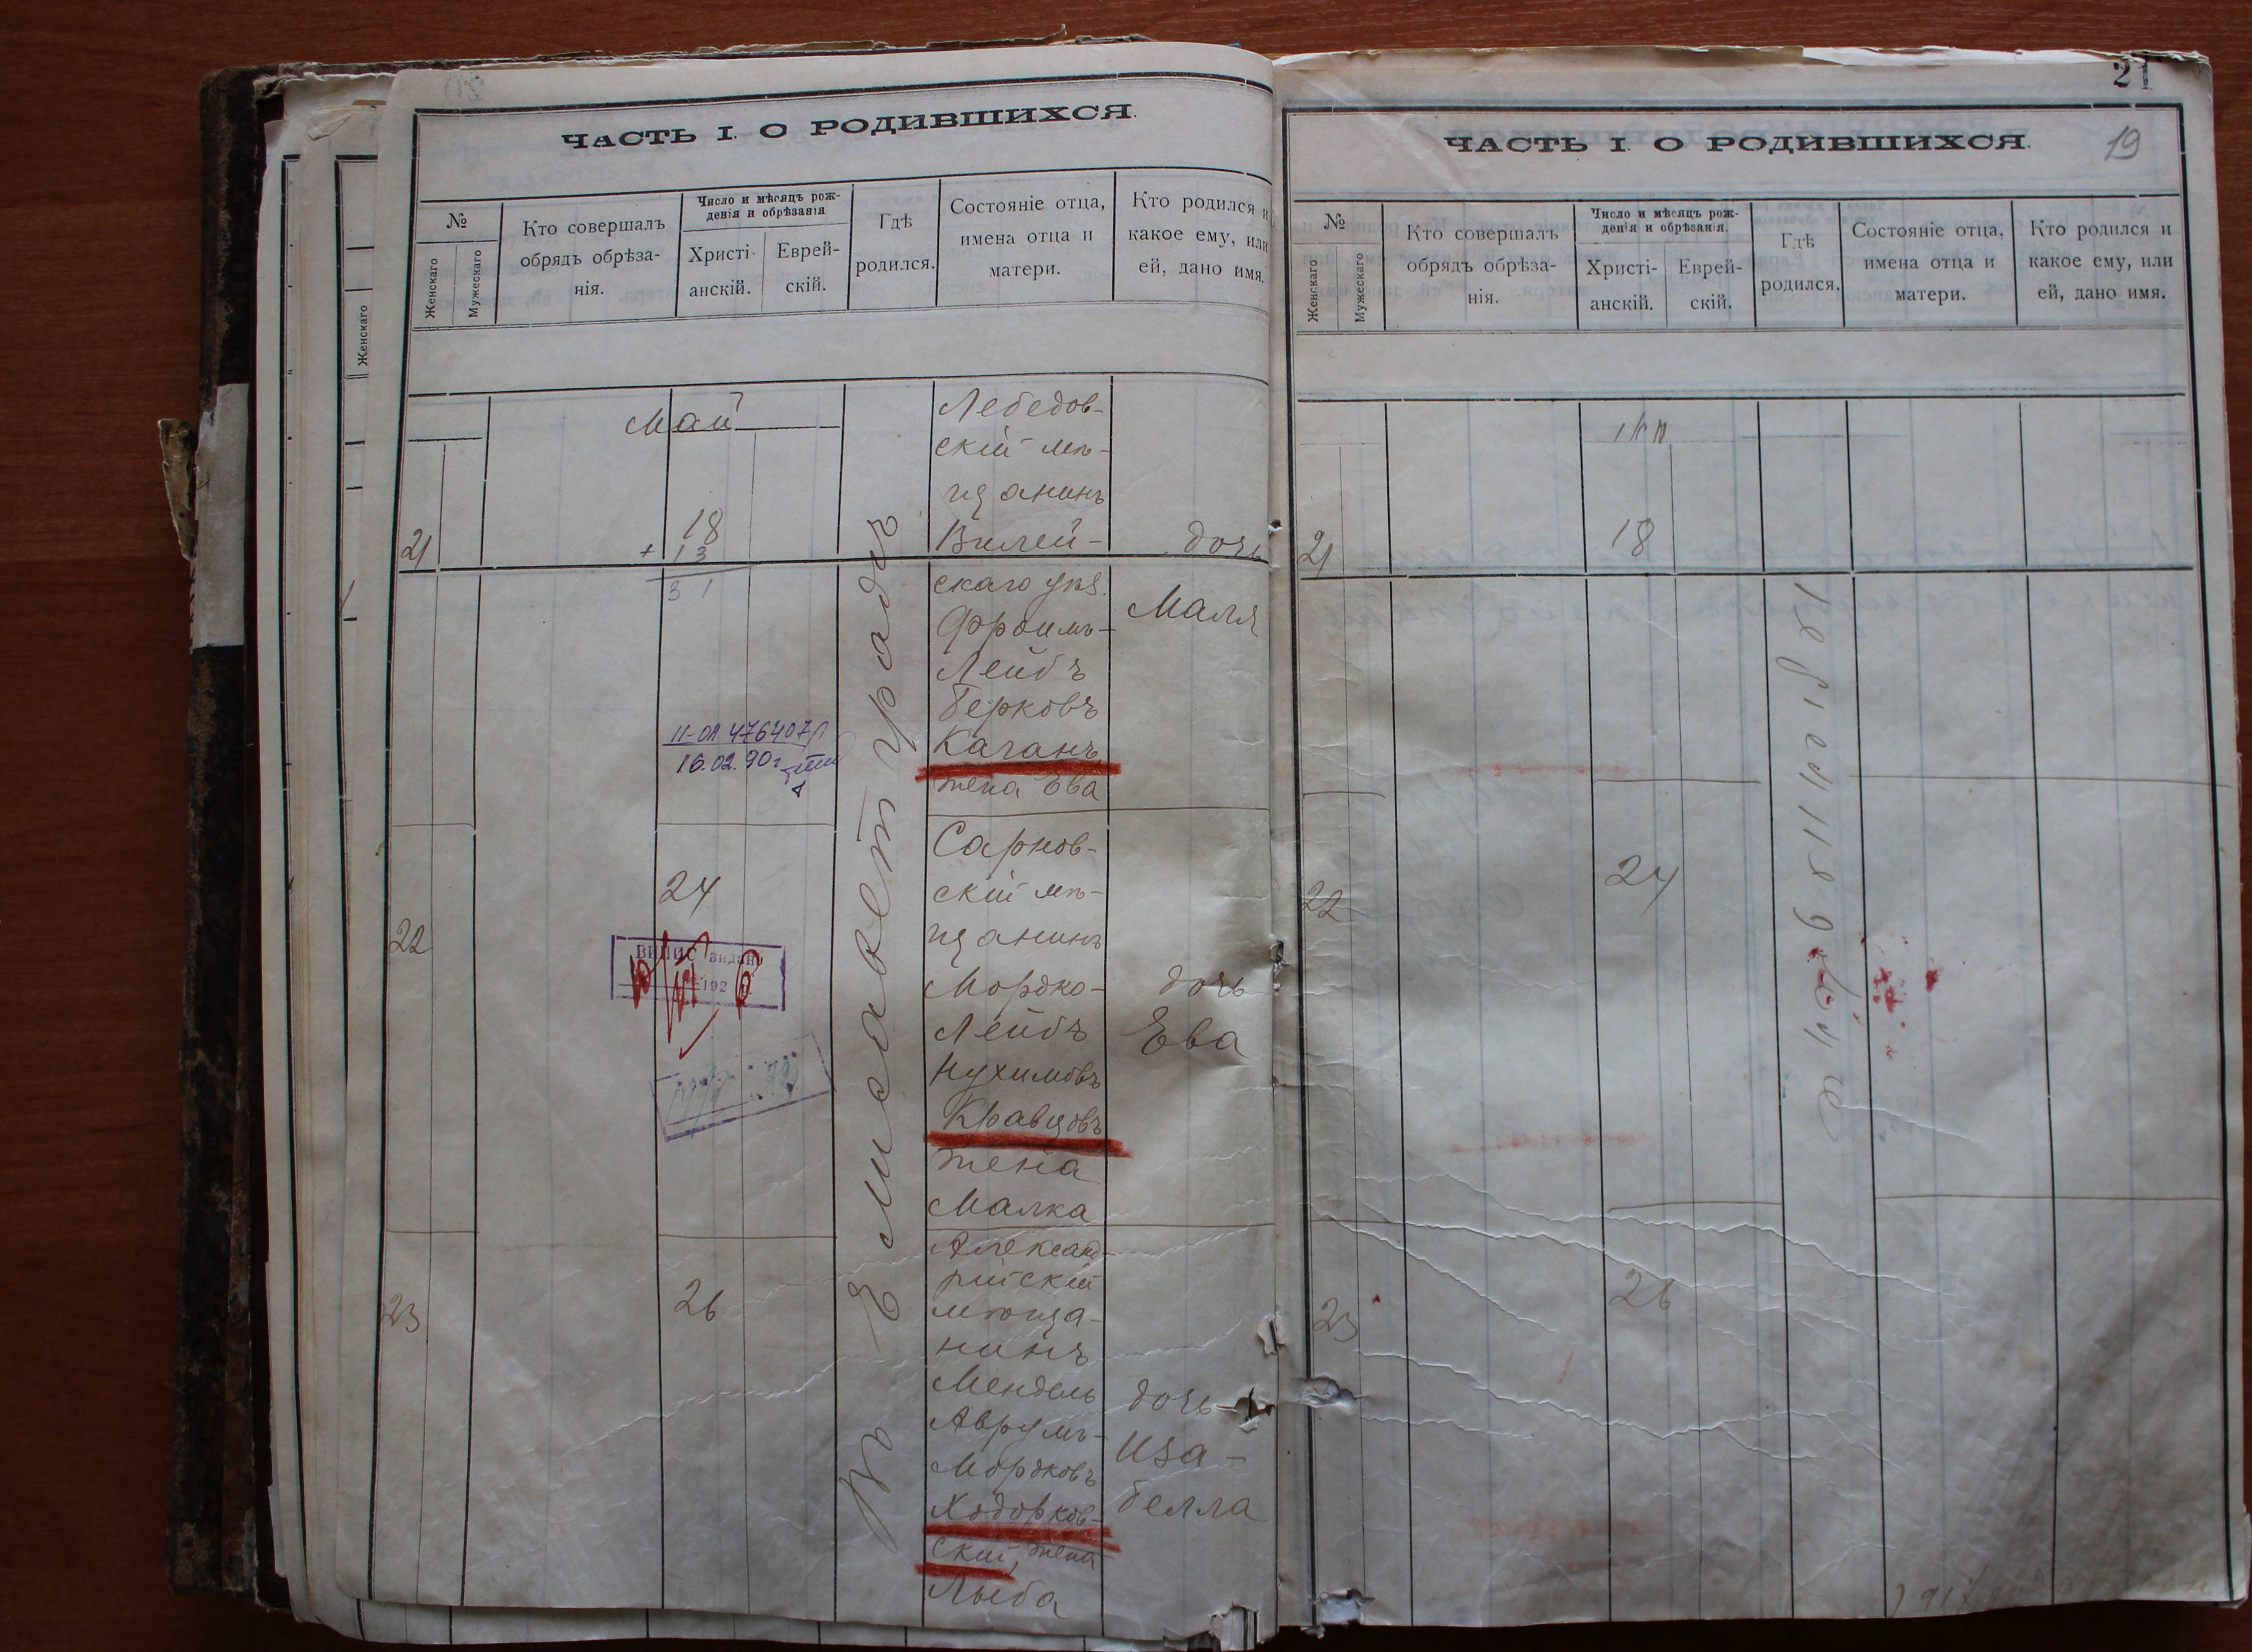 ЧАСТЬ I. О РОДИВШИХСЯ.
№
Женскаго
Мужескаго
Кто совершалъ
обрядъ обрѣза-
нія.
Число и мѣсяцъ рож-
денія и обрѣзанія
Христі-
анскій.
Еврей-
скій.
Гдѣ
родился.
Состояніе отца,
имена отца и
матери.
Кто родился и
какое ему, или
ей, дано имя.
Женскаго
Май
21
18
+ 13
31
11-ОЛ 476407
16.02.90г
Въ Елисаветградѣ
Лебедов-
скій мѣ-
щанинъ
Вилей-
скаго уѣз.
Фроимъ-
Лейбъ
Берковъ
Каганъ
жена Ева
дочь
Маля
22
24
ВИПИС видано
192
Сарнов-
скій мѣ-
щанинъ
Мордко-
Лейбъ
Нухимовъ
Кравцовъ
жена
Малка
дочь
Ева
23
26
Александ-
рійскій
мѣща-
нинъ
Мендель
Аврумъ-
Мордковъ
Ходорков-
скій, жена
Лыба
дочь
Иза-
белла
21
19
ЧАСТЬ I. О РОДИВШИХСЯ.
№
Женскаго
Мужескаго
Кто совершалъ
обрядъ обрѣза-
нія.
Число и мѣсяцъ рож-
денія и обрѣзанія.
Христі-
анскій.
Еврей-
скій.
Гдѣ
родился.
Состояніе отца,
имена отца и
матери.
Кто родился и
какое ему, или
ей, дано имя.
21
18
22
24
23
26